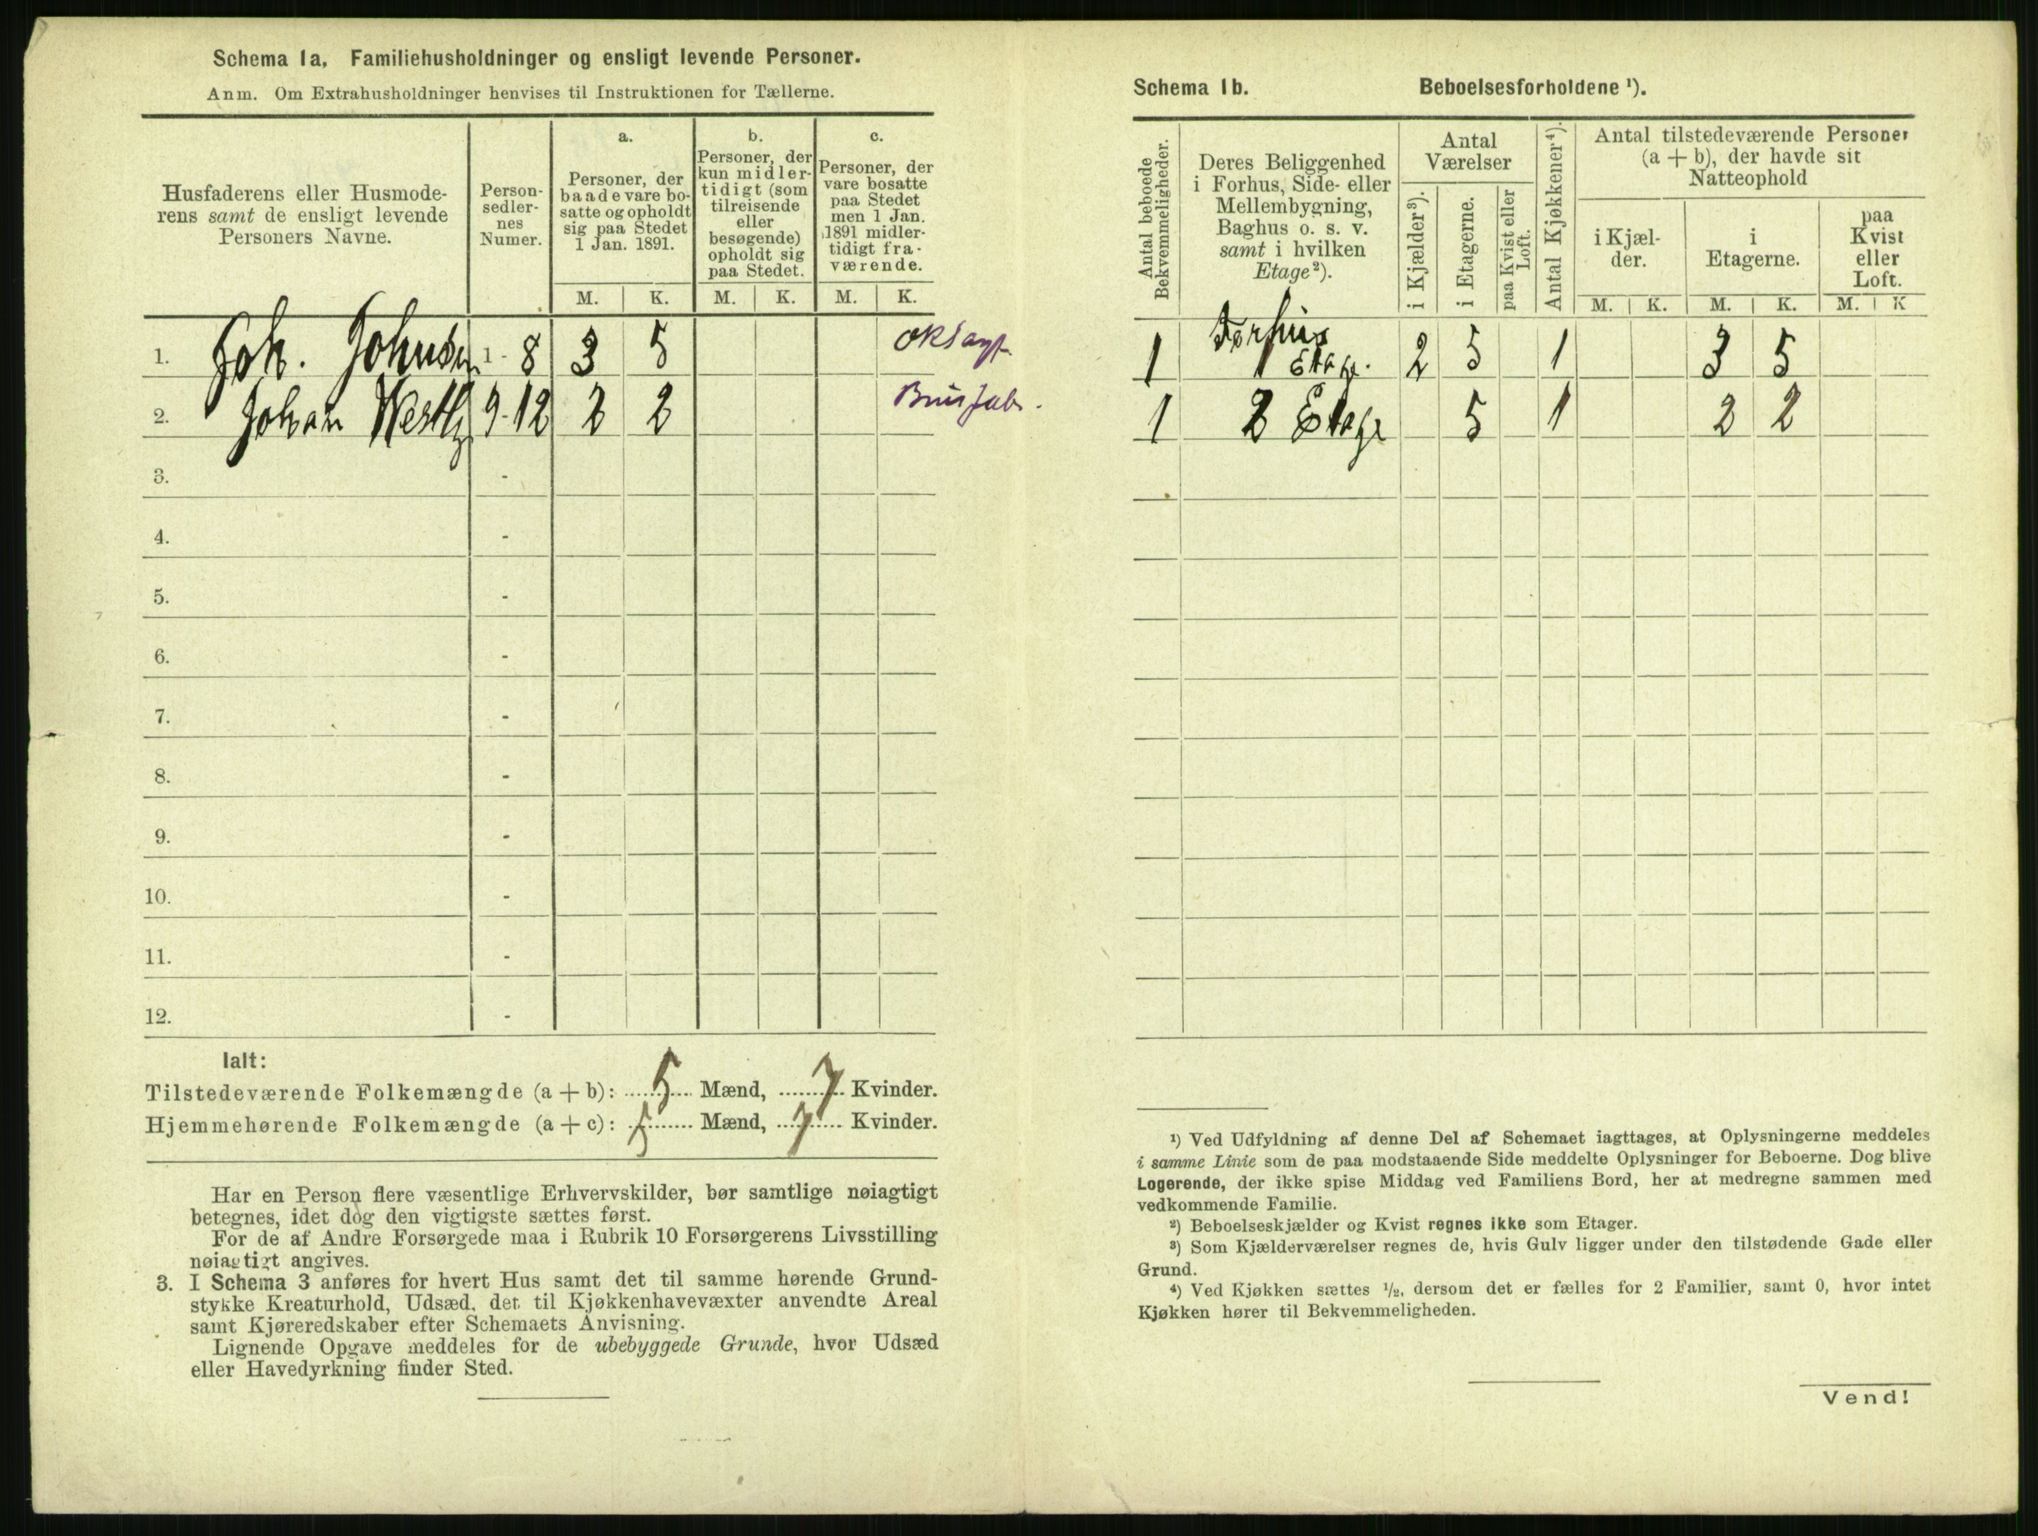 Schema 1a. Familiehusholdninger og ensligt levende Personer.
Anm. Om Extrahusholdninger henvises til Instruktionen for Tællerne.
Husfaderens eller Husmode-
rens samt de ensligt levende
Personers Navne.
Person-
sedler-
nes
Numer.
a.
Personer, der
baade vare bo-
satte og opholdt
sig paa Stedet
1 Jan. 1891.
b.
Personer, der
kun midler-
tidigt (som
tilreisende
eller
besøgende)
opholdt sig
paa Stedet.
c.
Personer, der
vare bosatte
paa Stedet
men 1 Jan.
1891 midler-
tidigt fra-
værende.
M. K. M. K. M. K.
1. Joh. Johnsen 1 - 8 3 5
2. Johan Westby 9-12 2 2
3. -
4. -
5. -
6. -
7. -
8. -
9. -
10. -
11. -
12. -
Ialt:
Tilstedeværende Folkemængde (a + b): 5 Mænd, 7 Kvinder.
Hjemmehørende Folkemængde (a + c): 5 Mænd, 7 Kvinder.
Har en Person flere væsentlige Erhvervskilder, bør samtlige nøiagtigt
betegnes, idet dog den vigtigste sættes først.
For de af Andre Forsørgede maa i Rubrik 10 Forsørgerens Livsstilling
nøiagtigt angives.
3. I Schema 3 anføres for hvert Hus samt det til samme hørende Grund-
stykke Kreaturhold, Udsæd, det til Kjøkkenhavevæxter anvendte Areal
samt Kjøreredskaber efter Schemaets Anvisning.
Lignende Opgave meddeles for de ubebyggede Grunde, hvor Udsæd
eller Havedyrkning finder Sted.
Schema 1b. Beboelsesforholdene ¹).
Antal beboede
Bekvemmeligheder.
Deres Beliggenhed
i Forhus, Side- eller
Mellembygning,
Baghus o. s. v.
samt i hvilken
Etage²).
Antal
Værelser
i Kjælder³).
i Etagerne.
paa Kvist eller
Loft.
Antal Kjøkkener⁴).
Antal tilstedeværende Personer
(a + b), der havde sit
Natteophold
i Kjæl-
der.
i
Etagerne.
paa
Kvist
eller
Loft.
M. K. M. K. M. K
Forhus
1 1 Etage. 2 5 1 3 5
1 2 Etage 5 1 2 2
¹) Ved Udfyldning af denne Del af Schemaet iagttages, at Oplysningerne meddeles
i samme Linie som de paa modstaaende Side meddelte Oplysninger for Beboerne. Dog blive
Logerende, der ikke spise Middag ved Familiens Bord, her at medregne sammen med
vedkommende Familie.
²) Beboelseskjælder og Kvist regnes ikke som Etager.
³) Som Kjælderværelser regnes de, hvis Gulv ligger under den tilstødende Gade eller
Grund.
⁴) Ved Kjøkken sættes ½, dersom det er fælles for 2 Familier, samt 0, hvor intet
Kjøkken hører til Bekvemmeligheden.
Vend!